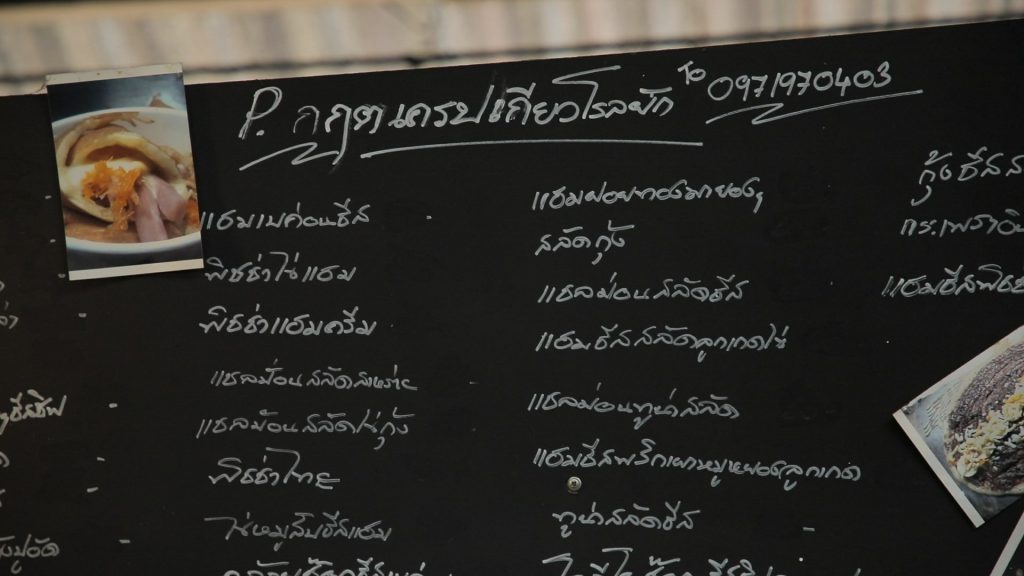 P. กฤตเครปเกียวโรลผัก To 0971970403
แฮมเบค่อนชีส
พิซซ่าไข่แฮม
พิซซ่าแฮมครีม
แซลม่อนสลัด
แซลม้อนสลัดไข่กุ้ง
พิซซ่าไทย
ไข่หมูสับชีสแฮม
แฮมฝอยทองมายองฯ
สลัดกุ้ง
แซลม่อนสลัดชีส
แฮมชีสสลัดลูกเกดไข่
แซลม่อนทูน่าสลัด
แฮมชีสพริกเผาหมูหยองลูกเกด
ทูน่าสลัดชีส
กุ้งชีสส
แฮมชีสพิซซ